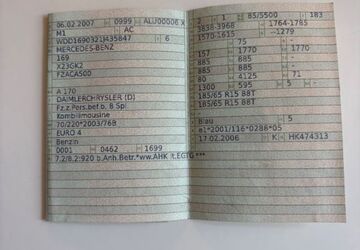 06.02.2007 0999 ALJ00006 X
M1 AC
WDD1690321J435847 6
MERCEDES-BENZ
169
X23GK2
FZACA500
A 170
DAIMLERCHRYSLER (D)
Fz.z.Pers.bef.b. 8 Spl.
Kombilimousine
70/220*2003/76B
EURO 4
Benzin
0001 0462 1699
7.2/8.2:920 b.Anh.Betr.*ww.AHK lt.EGTG ***
2 1 85/5500 183
3838-3968 1764-1785
1570-1615 --1279
75 - -
157 1770 1770
885 885 -
885 885 -
80 4125 71
1300 595 5 -
185/65 R15 88T
185/65 R15 88T
Blau 5
e1*2001/116*0288*05
17.02.2006 K HK474313